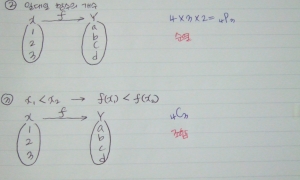 ② 일대일 함수의 개수
X f Y
1 a
2 b
3 c
d
4×3×2 = ₄P₃
순열
③ x₁ < x₂ → f(x₁) < f(x₂)
X f Y
1 a
2 b
3 c
d
₄C₃
조합